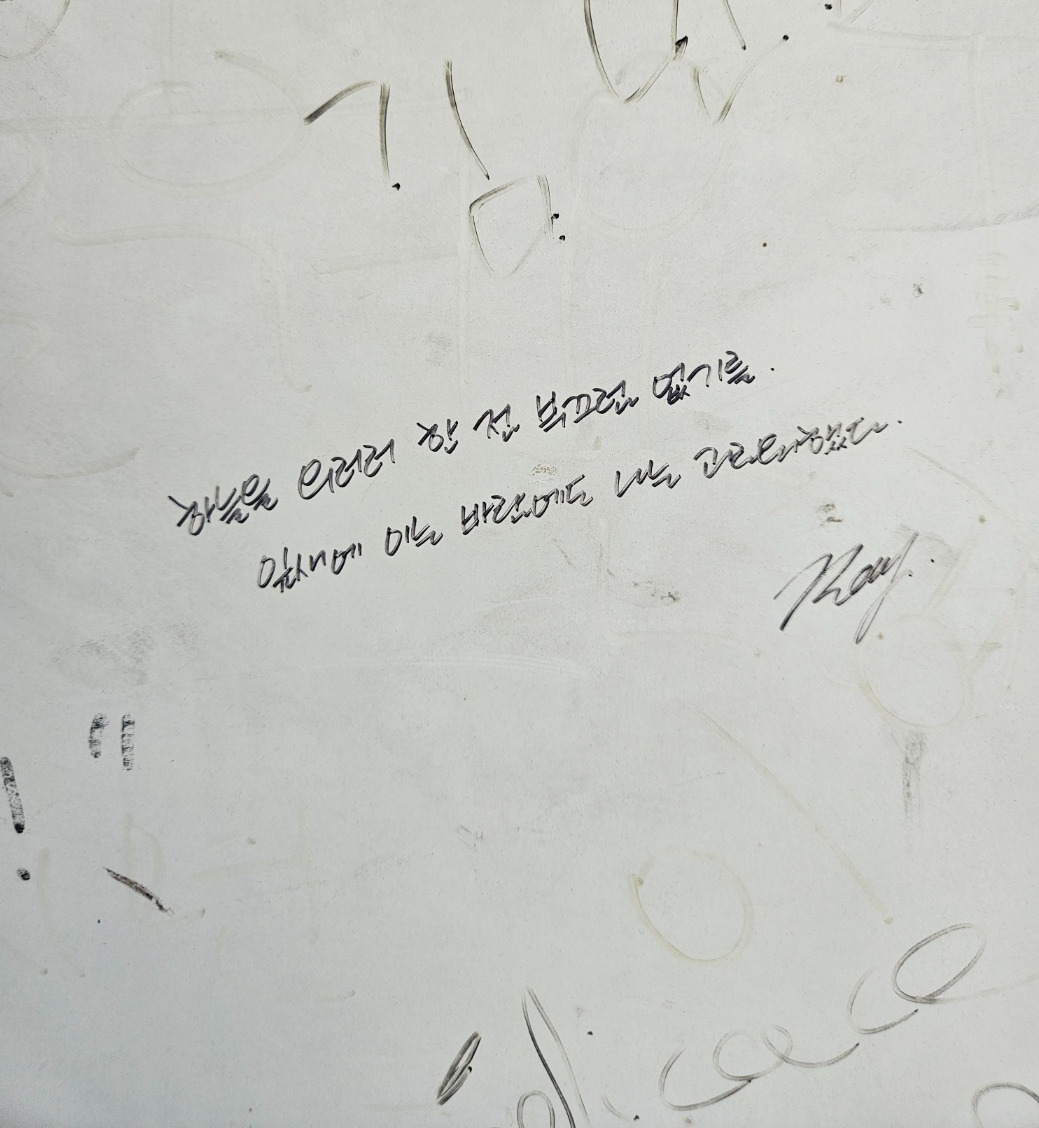 김
하늘을 우러러 한 점 부끄럼 없기를.
잎새에 이는 바람에도 나는 괴로워했다.
Ray.